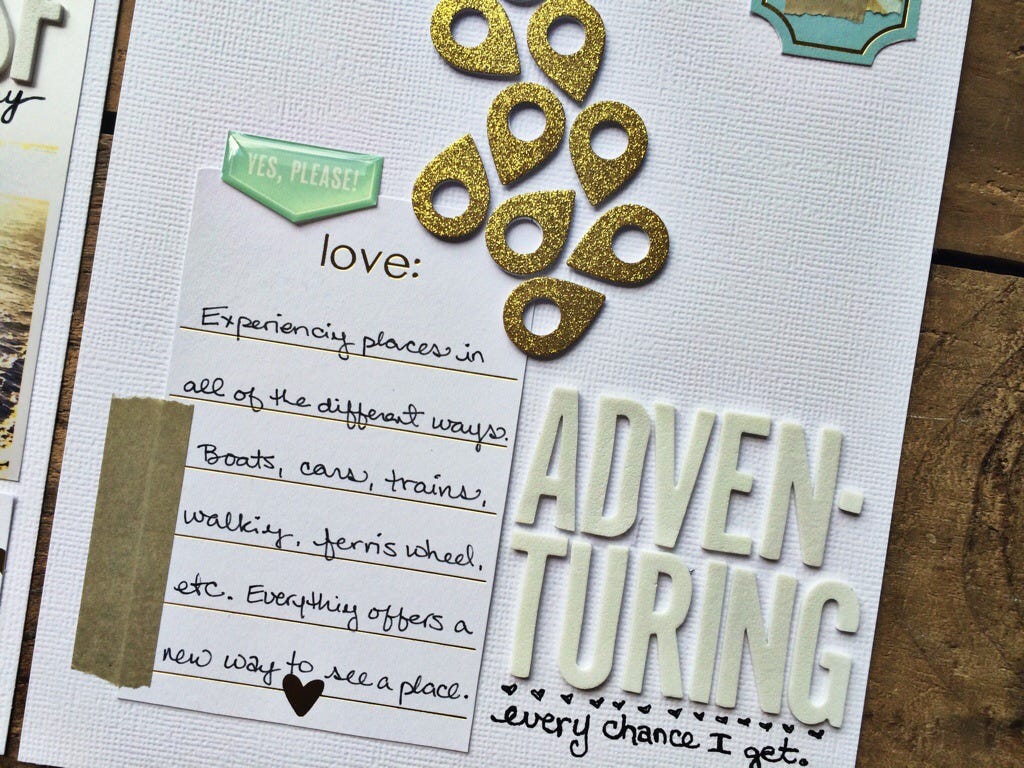 YES, PLEASE!
love:
Experiencing places in
all of the different ways.
Boats, cars, trains,
walking, ferris wheel,
etc. Everything offers a
new way to see a place.
ADVEN-
TURING
every chance I get.